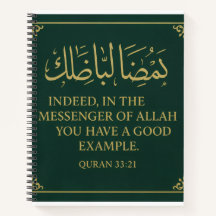 INDEED, IN THE
MESSENGER OF ALLAH
YOU HAVE A GOOD
EXAMPLE.
QURAN 33:21